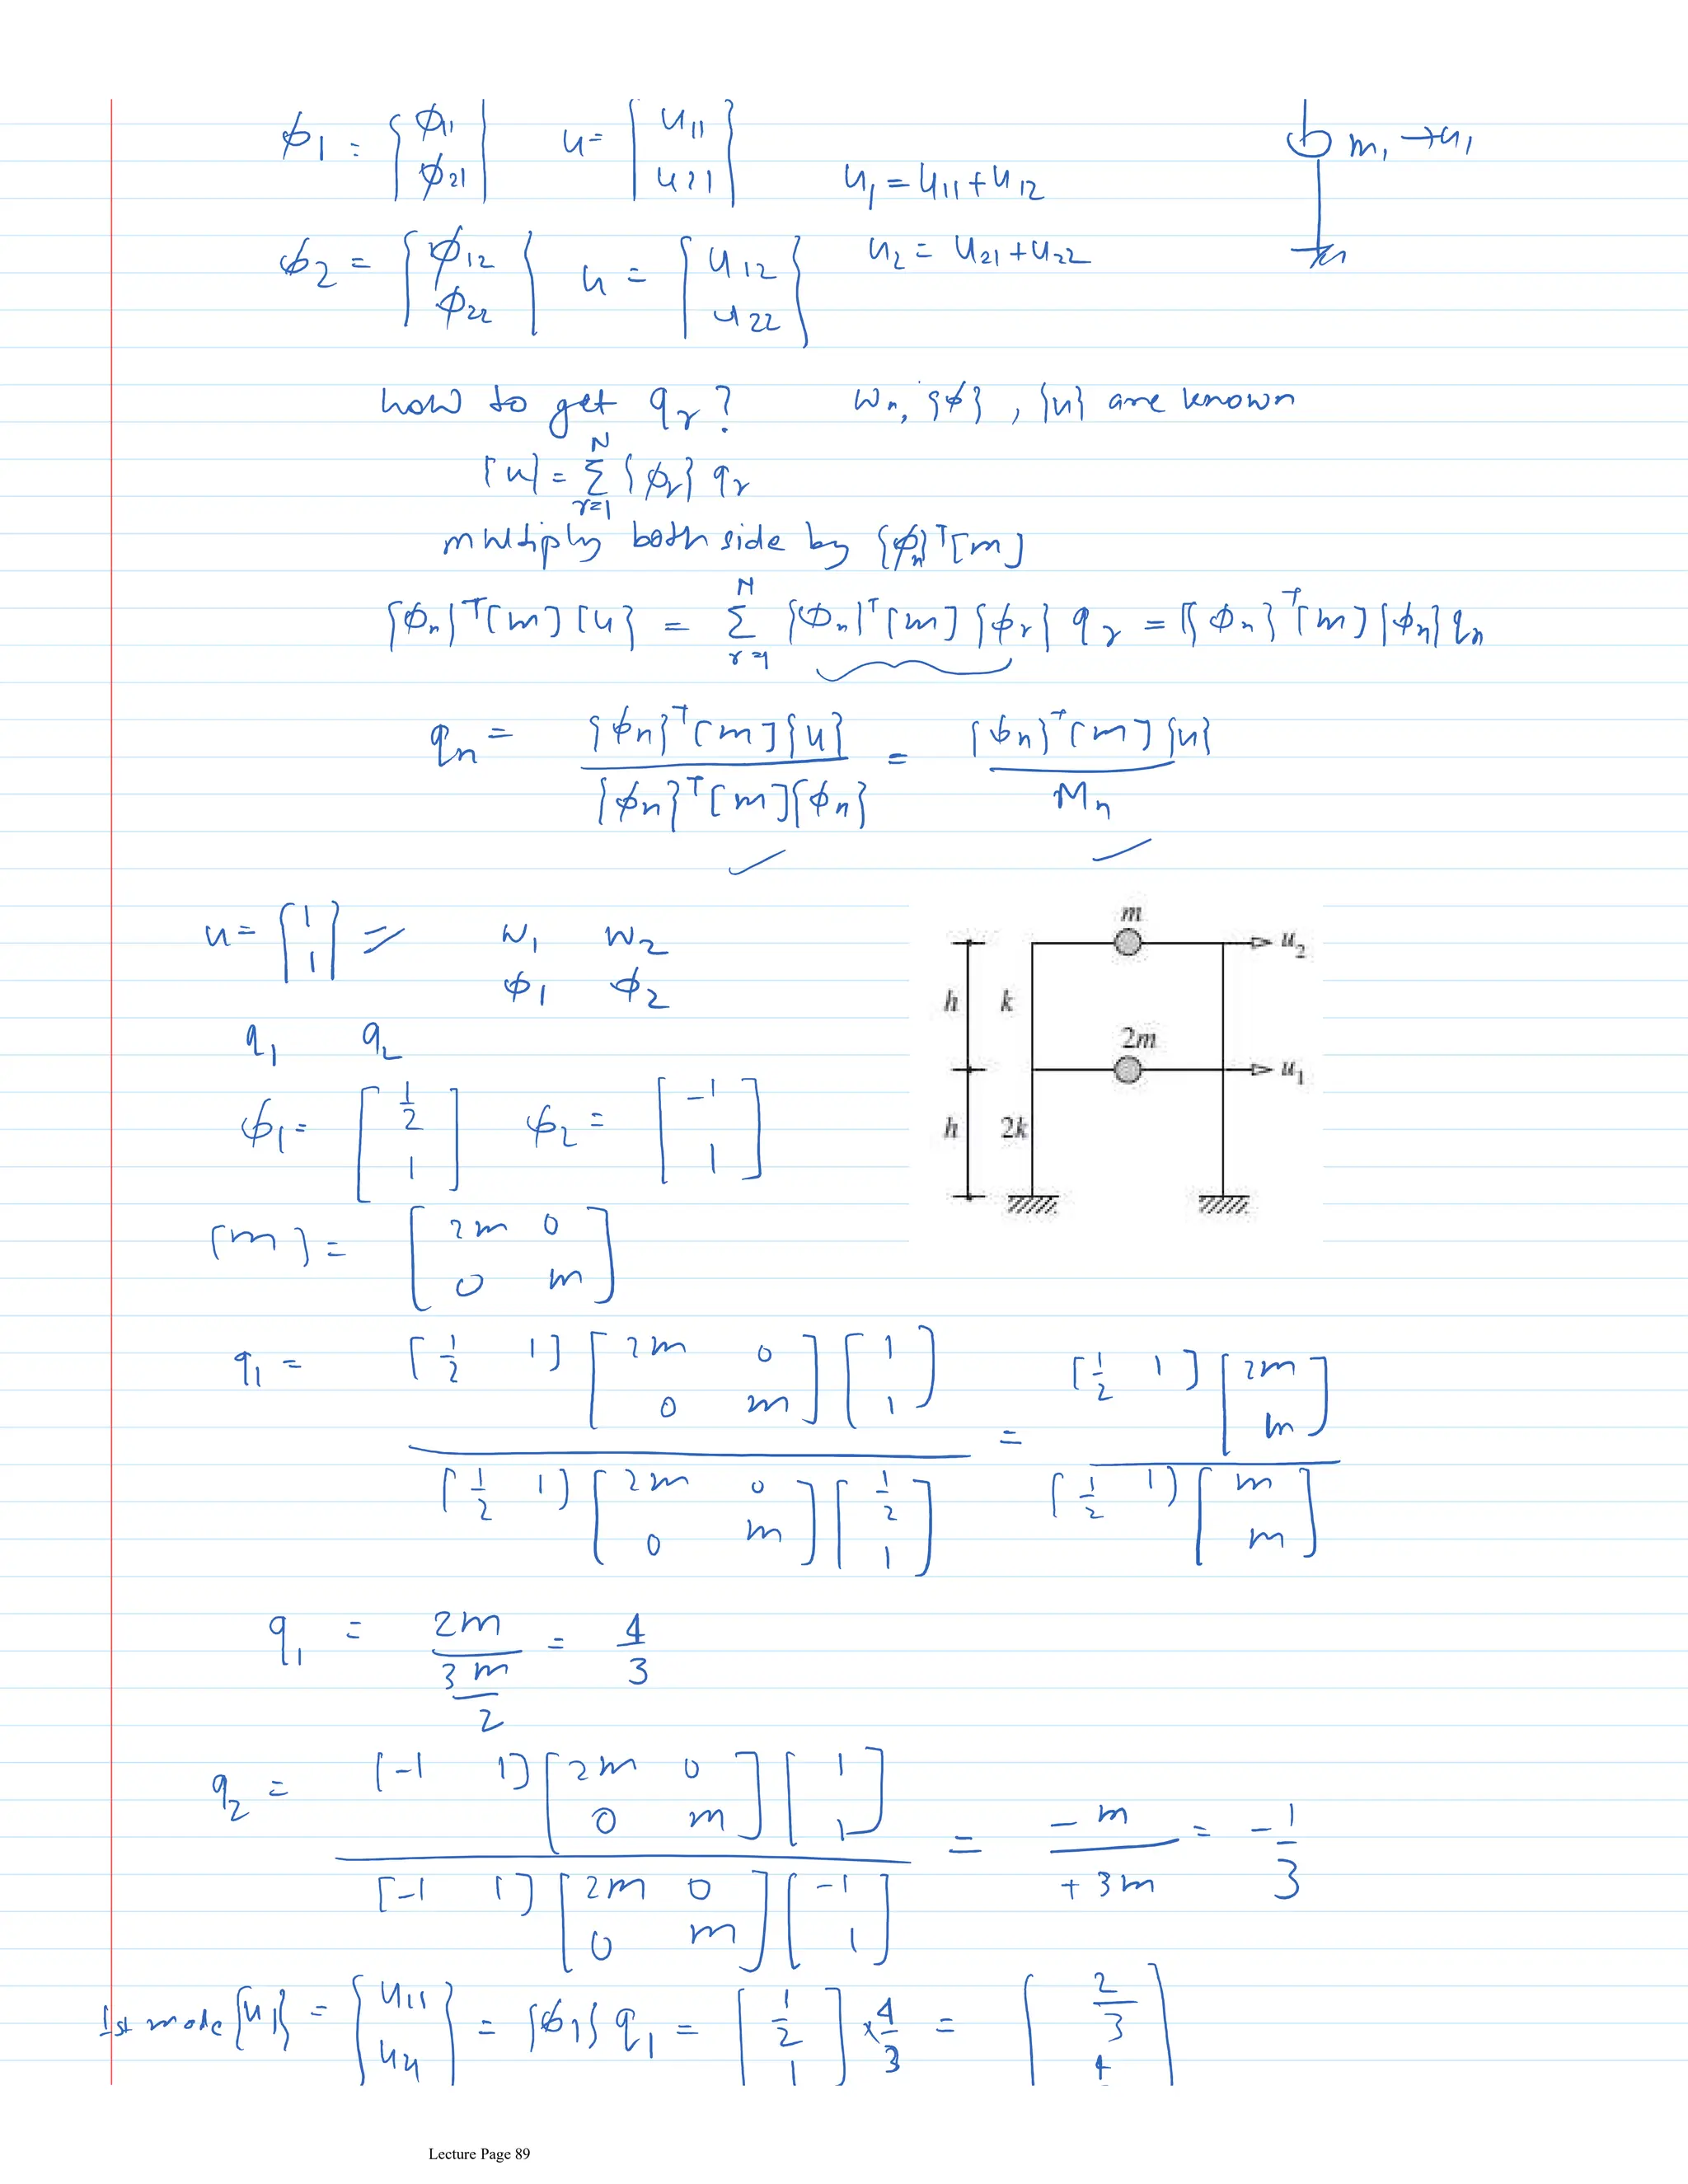 ϕ1 = {ϕ11 ϕ21} u = {u11 u21} m1 → u1
u1 = u11 + u12
ϕ2 = {ϕ12 ϕ22} u = {u12 u22} u2 = u21 + u22
how to get qr? wn, {ϕ}, {u} are known
{u} = Σ_{r=1}^{N} {ϕr} qr
multiply both side by {ϕn}^T [m]
{ϕn}^T [m] {u} = Σ_{r=1}^{N} {ϕn}^T [m] {ϕr} qr = {ϕn}^T [m] {ϕn} qn
qn = {ϕn}^T [m] {u} / {ϕn}^T [m] {ϕn} = {ϕn}^T [m] {u} / Mn
u = {1 1} w1 w2
ϕ1 ϕ2
q1 q2
ϕ1 = [1/2 1] ϕ2 = [-1 1]
m
u2
h k
2m
u1
h 2k
[m] = [2m 0; 0 m]
q1 = [1/2 1] [2m 0; 0 m] [1; 1] / [1/2 1] [2m 0; 0 m] [1/2; 1] = [1/2 1] [2m; m] / [1/2 1] [m; m]
q1 = 2m / (3m/2) = 4/3
q2 = [-1 1] [2m 0; 0 m] [1; 1] / [-1 1] [2m 0; 0 m] [-1; 1] = -m / +3m = -1/3
1st mode {u1} = {u11 u21} = {ϕ1} q1 = [1/2; 1] × 4/3 = [2/3; 4
Lecture Page 89